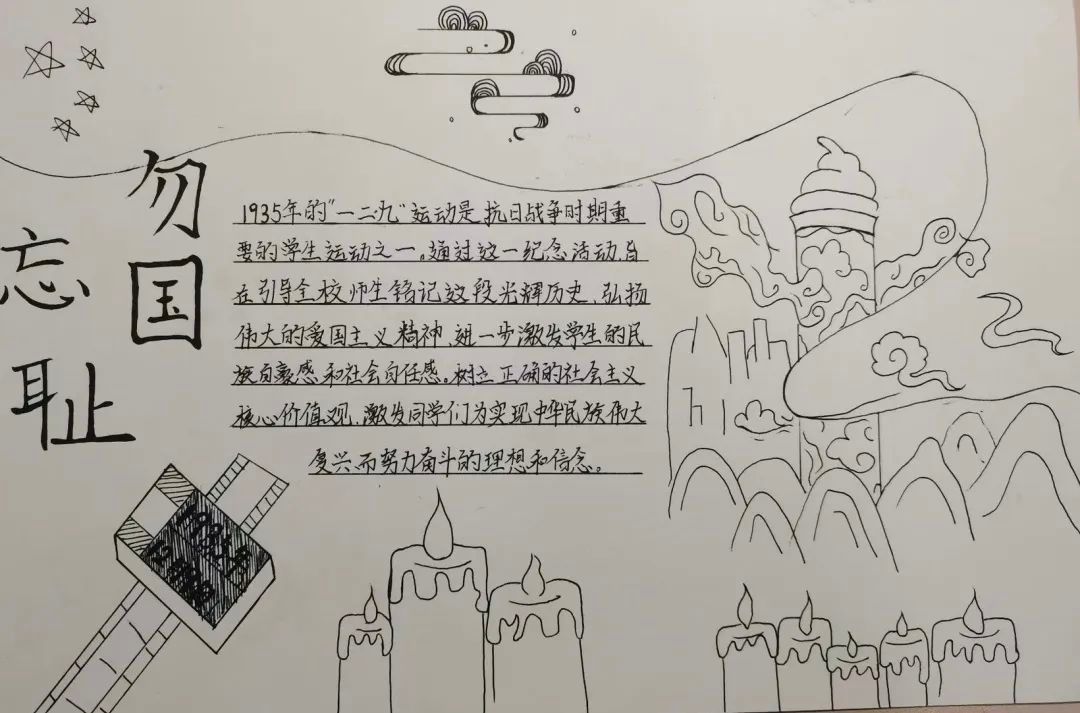 勿忘国耻
1935年的"一二九"运动是抗日战争时期重
要的学生运动之一。通过这一纪念活动,旨
在引导全校师生铭记这段光辉历史、弘扬
伟大的爱国主义精神,进一步激发学生的民
族自豪感和社会自任感。树立正确的社会主义
核心价值观,激发同学们为实现中华民族伟大
复兴而努力奋斗的理想和信念。
1935年